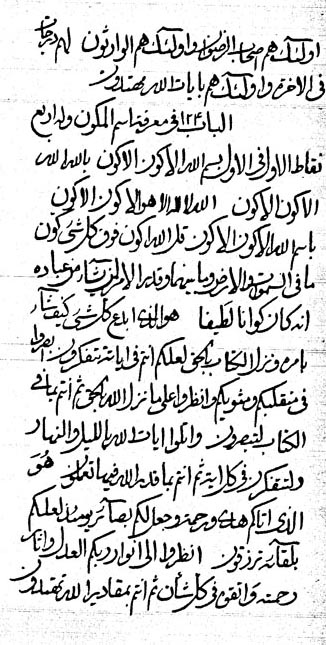 اولئك هم اصحاب الرضوان واولئك هم الوارثون لهم درجات
فى الاخرة واولئك هم بايات الله يهتدون
الباب ١٢٤ فى معرفة اسم المكون وله اربع
نقاط الاول فى الاول بسم الله الاكون الاكون بالله الله
الاكون الاكون الله لا اله الا هو الاكون الاكون
باسم الله الاكون الاكون قل الله اكون فوق كل شئ كون
ما فى السموات والارض وما بينهما وقدر الامر لمن يشاء من عباده
انه كان كوانا لطيفا هو الذى ابدع كل شئ كيف يشاء
بامره ونزل الكتاب بالحق لعلكم انتم فى اياته تتفكرون
فى منقلبكم ومثويكم وانظروا على ما نزل الله بالحق ثم انتم بما فى
الكتاب لتبصرون واتلوا ايات الله بالليل والنهار
ولتتفكرن فى كل اية ثم انتم بما قد الله فيها تعملون هو
الذى اتاكم هدى ورحمة وجعل لكم بصائر لعلكم
بلقائه ترزقون انظروا الى انوار ربكم العدل واثار
رحمته واتقوه فى كل شأن ثم انتم بمقادير الله تهتدون